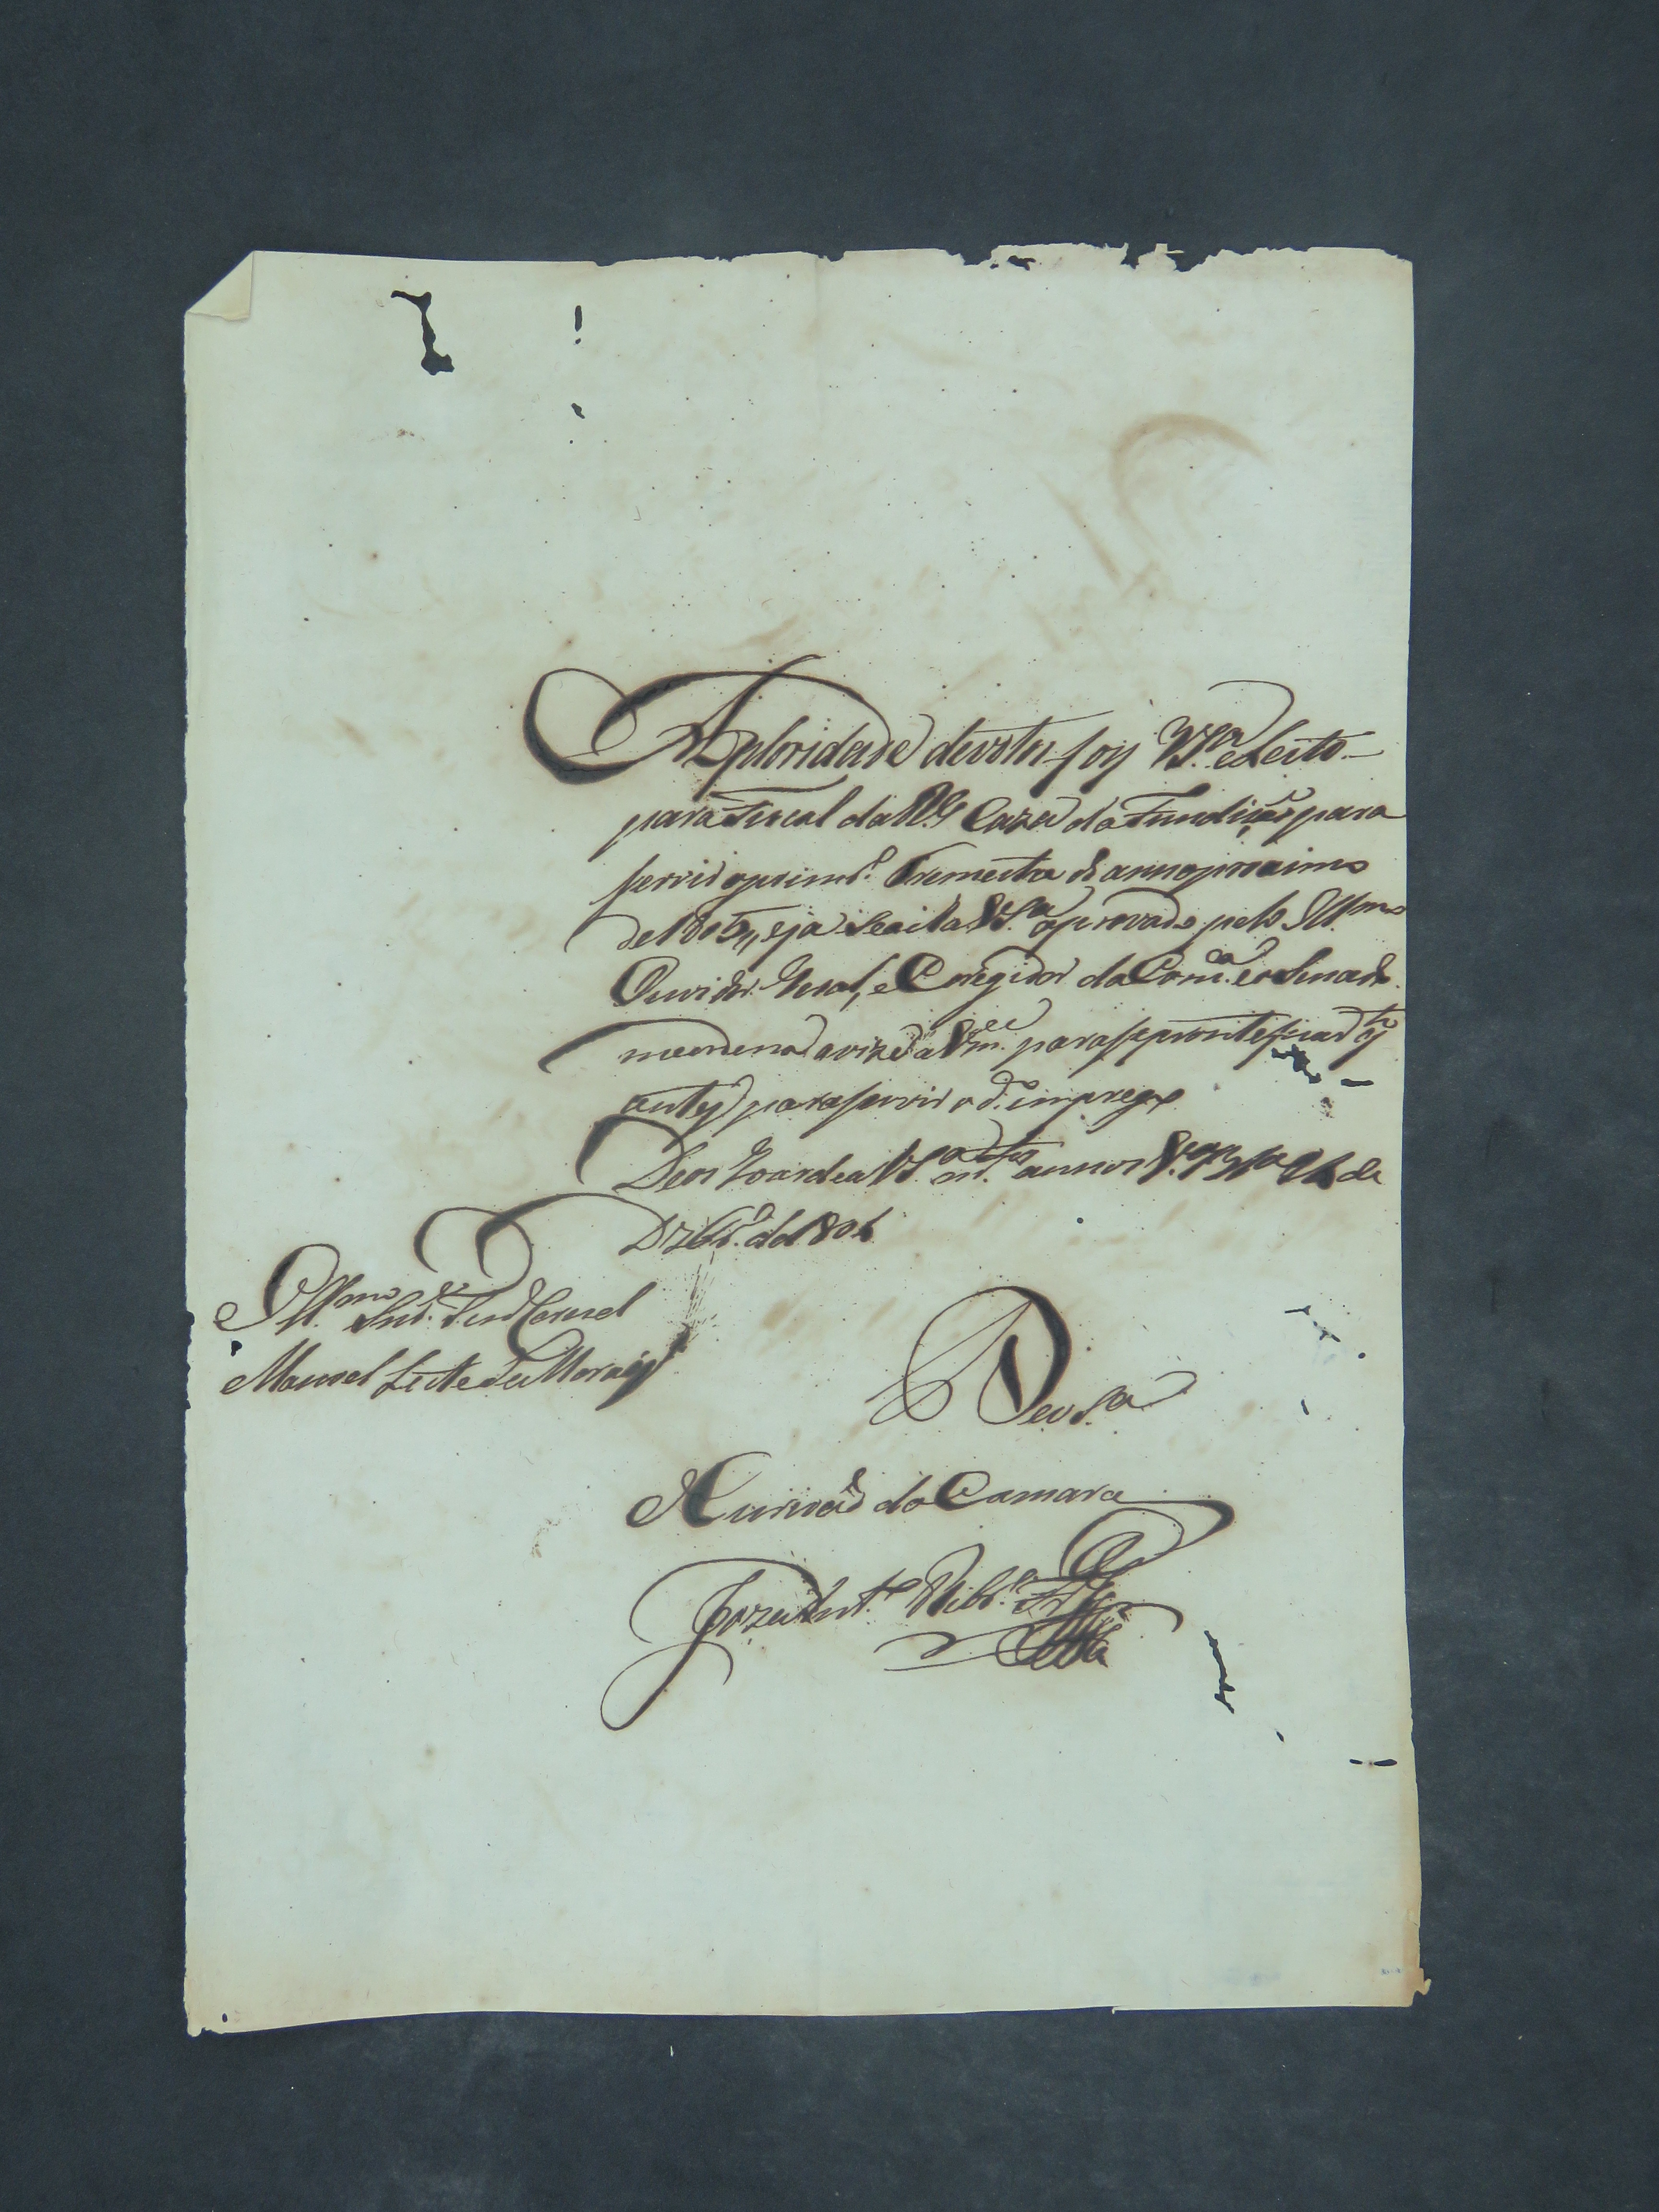 Apluridade devotos foy VS.ª eLeito
para Fiscal da Rl Caza da Fundição para
servir oprimr.º Tremestre do anno proximo
de1805, eja seaxa VS.ª aprovado pelo Illmo
Ouvidor Geral, e Coregidor da Comca. eo Senado
meordena avize a Vmce. para
para servir o d.º emprego
Deos Goarde a VS.ª ms. annos V.ª 26 de
Dzbr.º de1804
Illmo Snr. Ten.e Coronel
Manoel Leite de Moraes
De VS.ª
Escrivão da Camara
Joze Ant.º Ribr.º